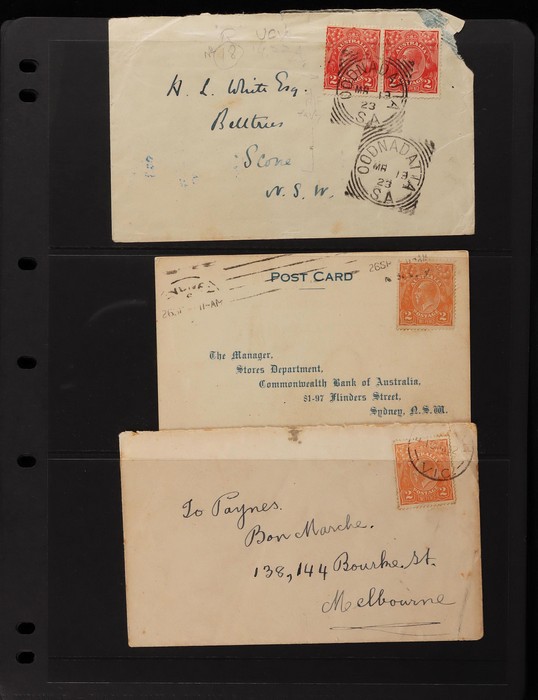 OODNADATTA
MR 13
23
S.A
OODNADATTA
MR 13
23
S.A
H. L. White Esq.
Belltrees
Scone
N. S. W.
POST CARD
The Manager,
Stores Department,
Commonwealth Bank of Australia,
81-97 Flinders Street,
Sydney, N.S.W.
To Paynes.
Bon Marche.
138, 144 Bourke. St.
Melbourne
VIC